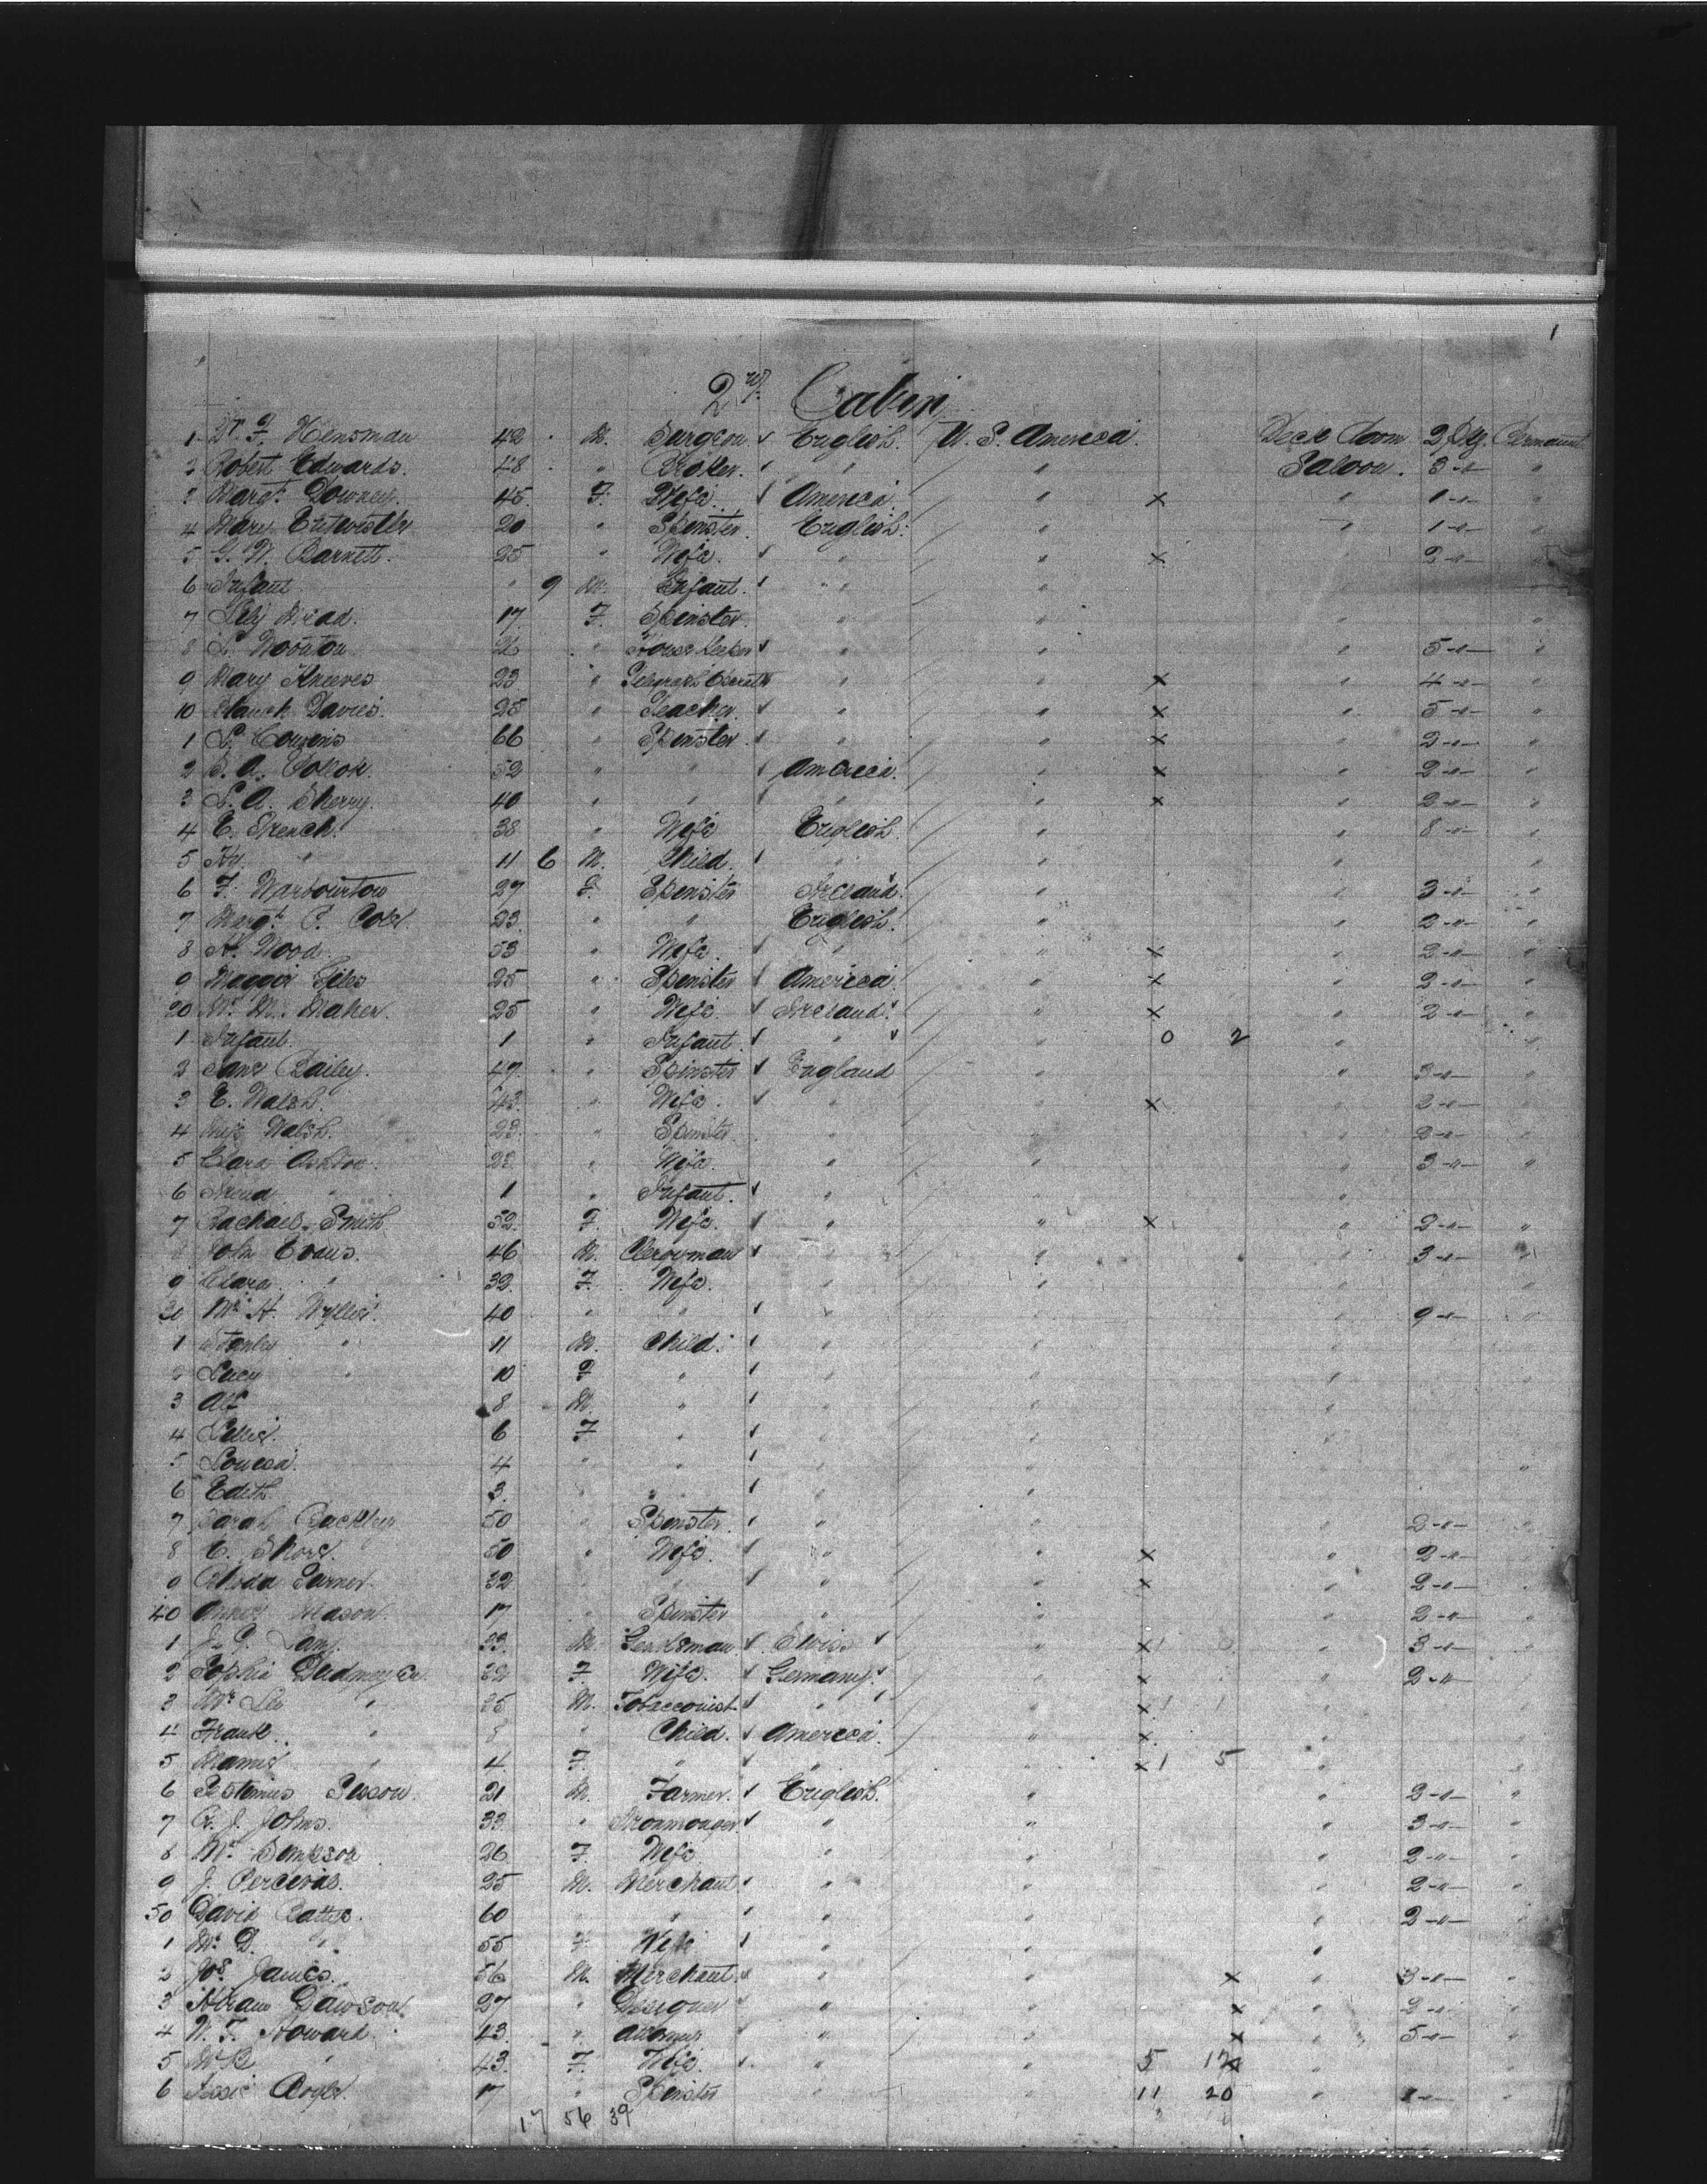 1
2nd Cabin
1 Dr. F. Hensman 42 M. Surgeon English U. S. America Deck Room 2 Pkg. Permanent
2 Robert Edwards. 48 " Broker. " " Saloon. 3 -"- "
3 Margt. Downes. 45 F. Wife. America. " x " 1 -"- "
4 Mary Entwistle 20 " Spinster. English. " " 1 -"- "
5 G. W. Barnett. 25 " Wife. " " x " 2 -"- "
6 Infant " 9 M. Infant. " " "
7 Lily Mead. 17 F. Spinster. " " " "
8 L. Wootton " House Keeper " " " 5 -"- "
9 Mary Kneeves 23 " " " x " 4 -"- "
10 Davies. 25 " Teacher. " " x " 5 -"- "
1 L. Cousens 66 " Spinster. " " x " 2 -"- "
2 S. A. 52 " " America. " x " 2 -"- "
3 L. A. Sherry. 40 " " " " x " 2 -"- "
4 E. French. 38 " Wife English. " " 8 -"- "
5 Hy. " 11 6 M. Child. " " " "
6 F. Warbourton 27 F. Spinster Ireland. " " 3 -"- "
7 Margt. C. Cole. 23. " " English. " " 2 -"- "
8 A. Wood. 53 " Wife. " " x " 2 -"- "
9 Maggie Giles 25 " Spinster America. " x " 2 -"- "
20 Mrs. M. Maher. 25 " Wife. Ireland. " x " 2 -"- "
1 Infant. 1 " Infant. " " 0 2 " "
2 Jane Bailey. 49. " Spinster England " " 3 -"- "
3 E. Walsh. 43. " Wife. " " x " 2 -"- "
4 Walsh. 23. " Spinster. " " " 2 -"- "
5 Clara Ashton. " Wife. " " " 3 -"- "
6 " 1 " Infant. " " "
7 Rachael Smith 52. F. Wife. " " x " 2 -"- "
8 John Evans. 46 M. Clergyman " " " 3 -"- "
9 Clara " 32. F. Wife. " " " "
30 Mrs. H. Wyllie. 40 " " " " " 9 -"- "
1 Stanley " 11 M. Child. " " "
2 Lucy " 10 F " " " "
3 Alf 8 M. " " " "
4 Lillie. 6 F " " " "
5 Louisa. 4 " " " " "
6 Edith. 3. " " " "
7 Sarah 50 " Spinster. " " " 2 -"- "
8 E. Shore. 50 " Wife. " " x " 2 -"-
9 Rhoda Turner. 32 " " " " x " 2 -"-
40 Annie Mason. 17 " Spinster " " " 2 -"-
1 J. G. Lang. 33. M. Swiss " x 1 3 -"-
2 Sophie 32 F. Wife. Germany. " x " 2 -"-
3 Mr. Leo " 35 M. Tobacconist " " x 1 1
4 Frank " 8 " Child. America. " x "
5 Mamie " 4. F. " " " x 1 5 " "
6 21 M. Farmer. English. " " 2 -"- "
7 G. J. Johns. 33. " Ironmonger. " " " 3 -"- "
8 Mrs. Simpson 26 F. Wife " " " 2 -"- "
9 J. Percival. 25 M. Merchant. " " " 2 -"- "
50 David 60 " " " " " 2 -"- "
1 Mrs. D. " 55 F. Wife " " "
2 Jos. James. 56 M. Merchant. " " x " 3 -"- "
3 Dawson 27 " Designer " " x " 2 -"- "
4 W. F. Howard 43. " " " x " 5 -"- "
5 " 43. F. Wife. " " 5 17 "
6 17 " Spinster " " 11 20 " "
17 56 39